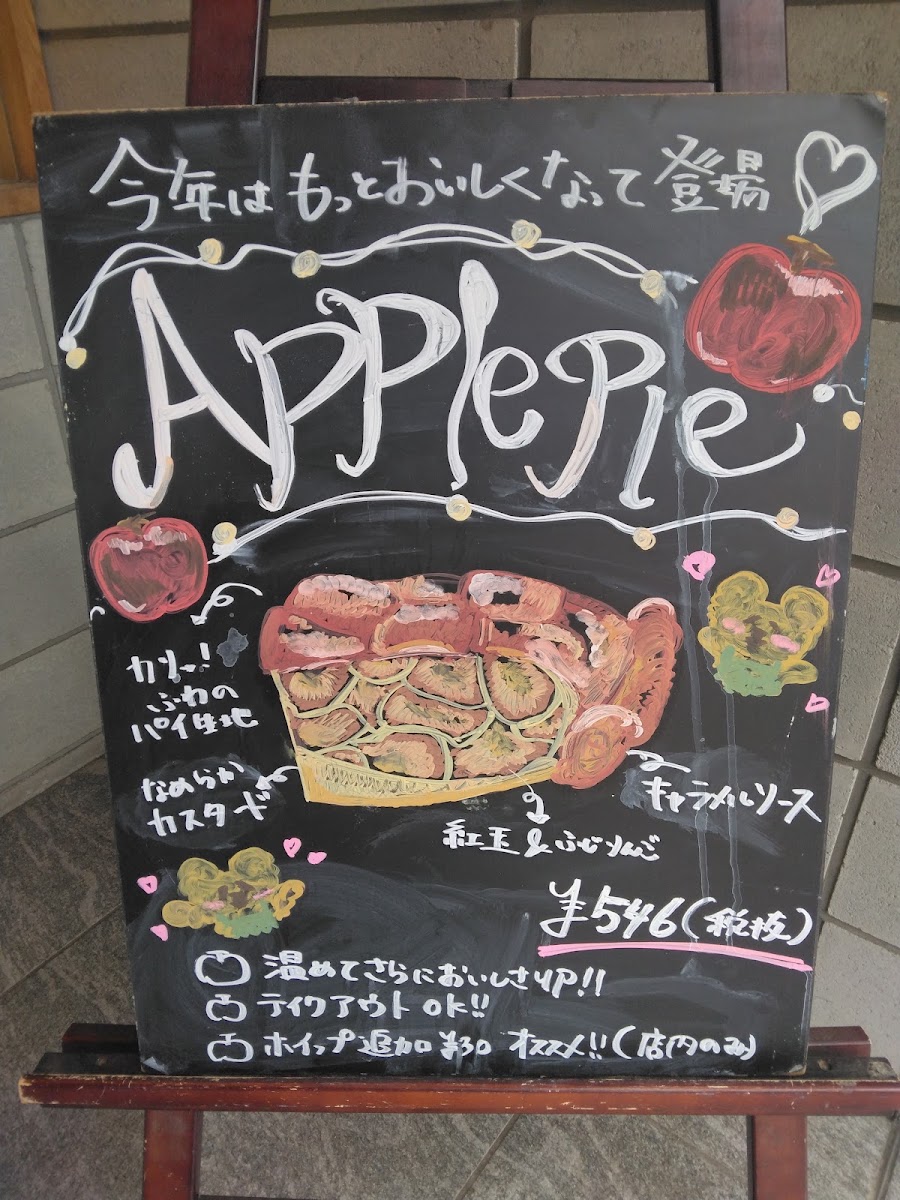 今年はもっとおいしくなって登場
APPlePie
カリッ!
ふわの
パイ生地
なめらか
カスタード
キャラメルソース
紅玉&ふじりんご
¥546(税抜)
温めてさらにおいしさUP!!
テイクアウトOK!!
ホイップ追加¥30 オススメ!!(店内のみ)